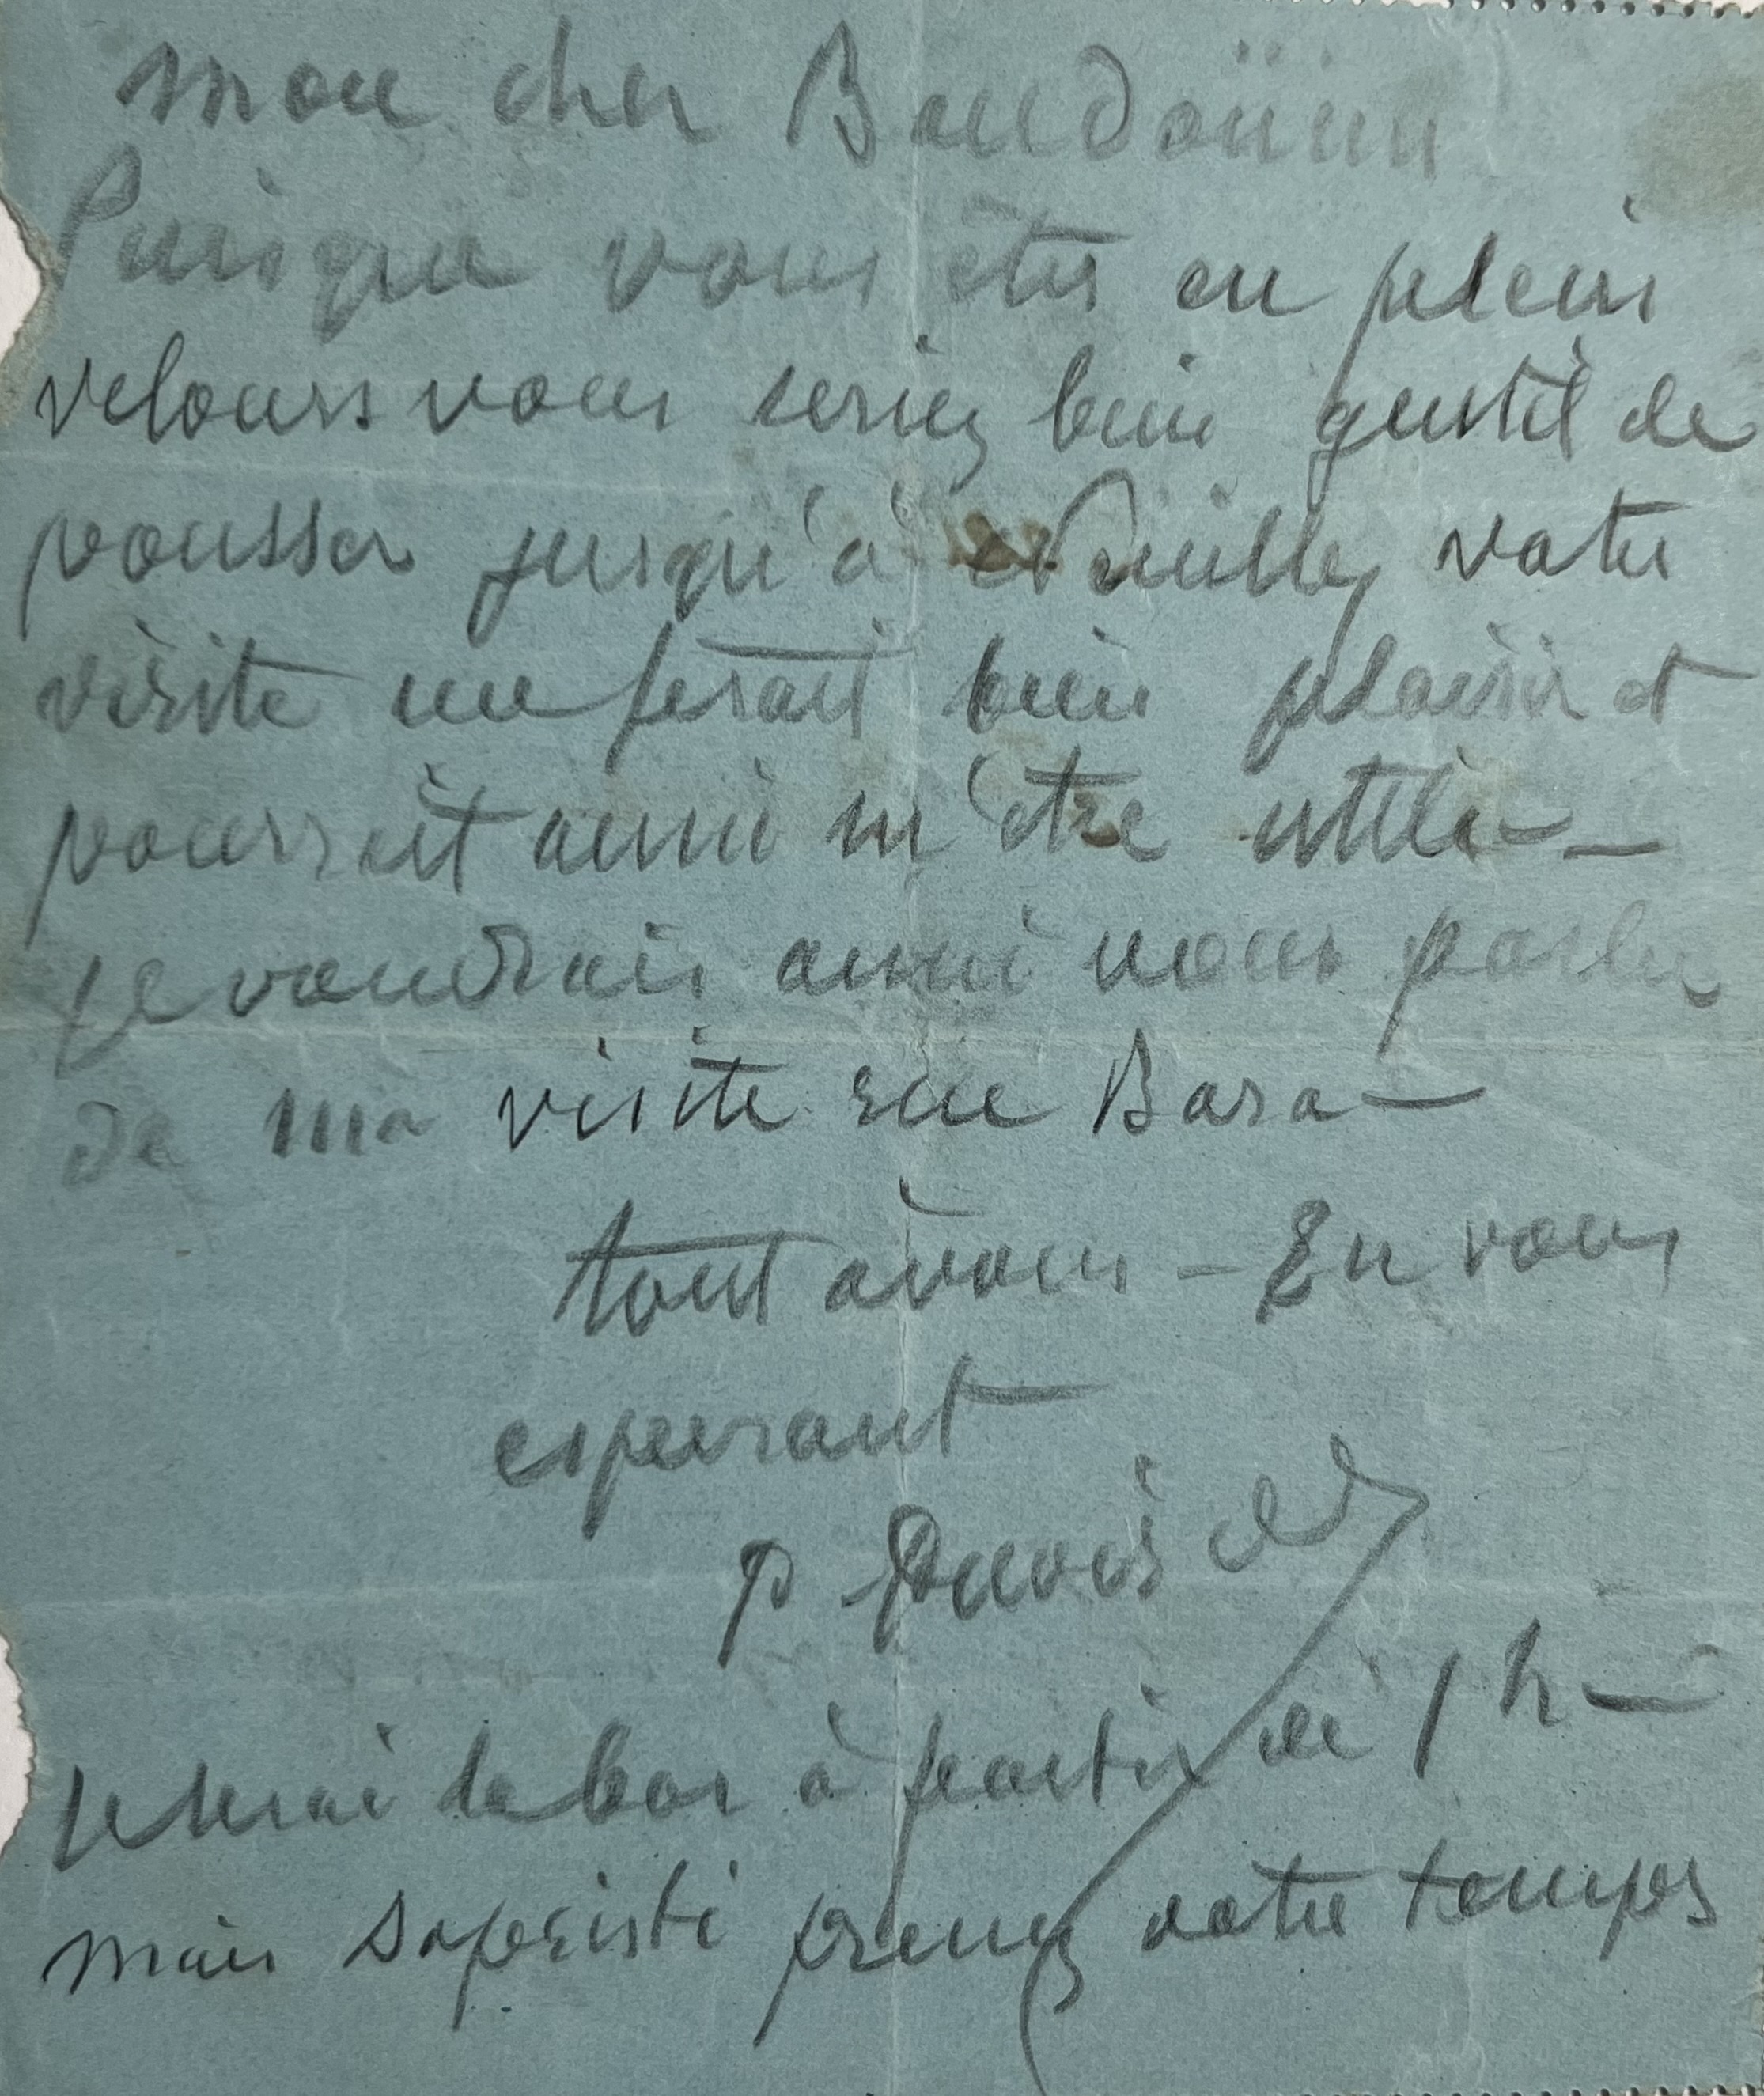 Mon cher Baudoüin
Puisque vous êtes en plein
velours vous seriez bien gentil de
pousser jusqu'à Neuilly, votre
visite me ferait bien plaisir et
pourrait aussi m'être utile —
Je voudrais aussi vous parler
de ma visite rue Bara —
tout à vous — En vous
esperant
P
Je serai là bas à partir de 1 h —
mais sapristi prenez votre temps